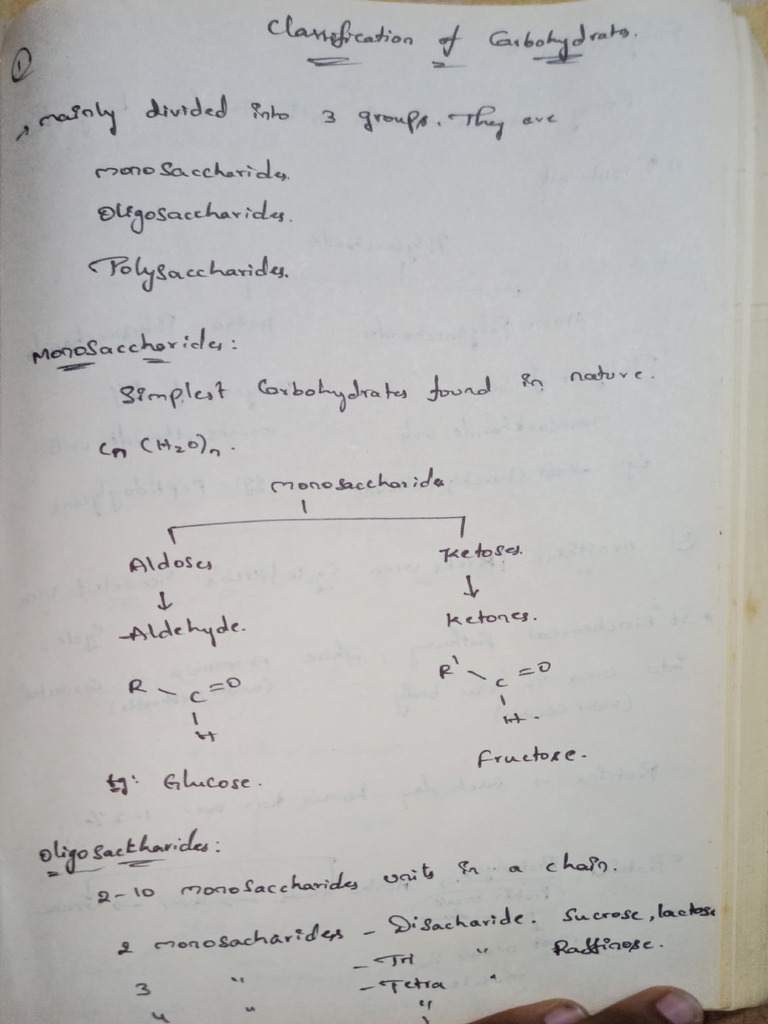 Classification of Carbohydrates.
1
mainly divided into 3 groups. They are
monosaccharides.
Oligosaccharides.
Polysaccharides.
Monosaccharides:
Simplest Carbohydrates found in nature.
Cn (H2O)n.
monosaccharide
Aldoses Ketoses.
↓ ↓
Aldehyde. Ketones.
R - C = O R' - C = O
H H.
Eg: Glucose. Fructose.
Oligosactharides:
2-10 monosaccharides units in a chain.
2 monosacharides - Disacharide. Sucrose, lactose
3 " - Tri " Raffinose.
4 " - Tetra "